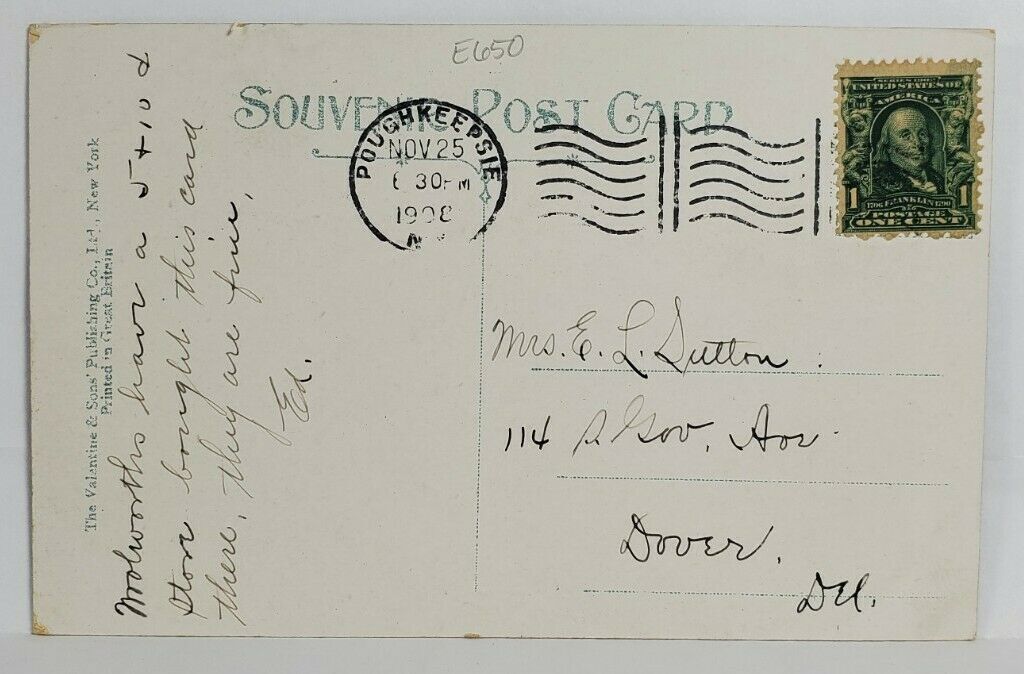 E650
SOUVENIR POST CARD
POUGHKEEPSIE
NOV 25
6 30 PM
1908
N.Y.
SERIES 1902
UNITED STATES OF
AMERICA
1 1
1706 FRANKLIN 1790
POSTAGE
ONE CENT
The Valentine & Sons' Publishing Co., Ltd., New York
Printed in Great Britain
Woolworths have a 5 + 10 ¢
store bought this card
there, they are fine,
Ed.
Mrs. E. L. Sutton.
114 S Gov. Ave
Dover,
Del.